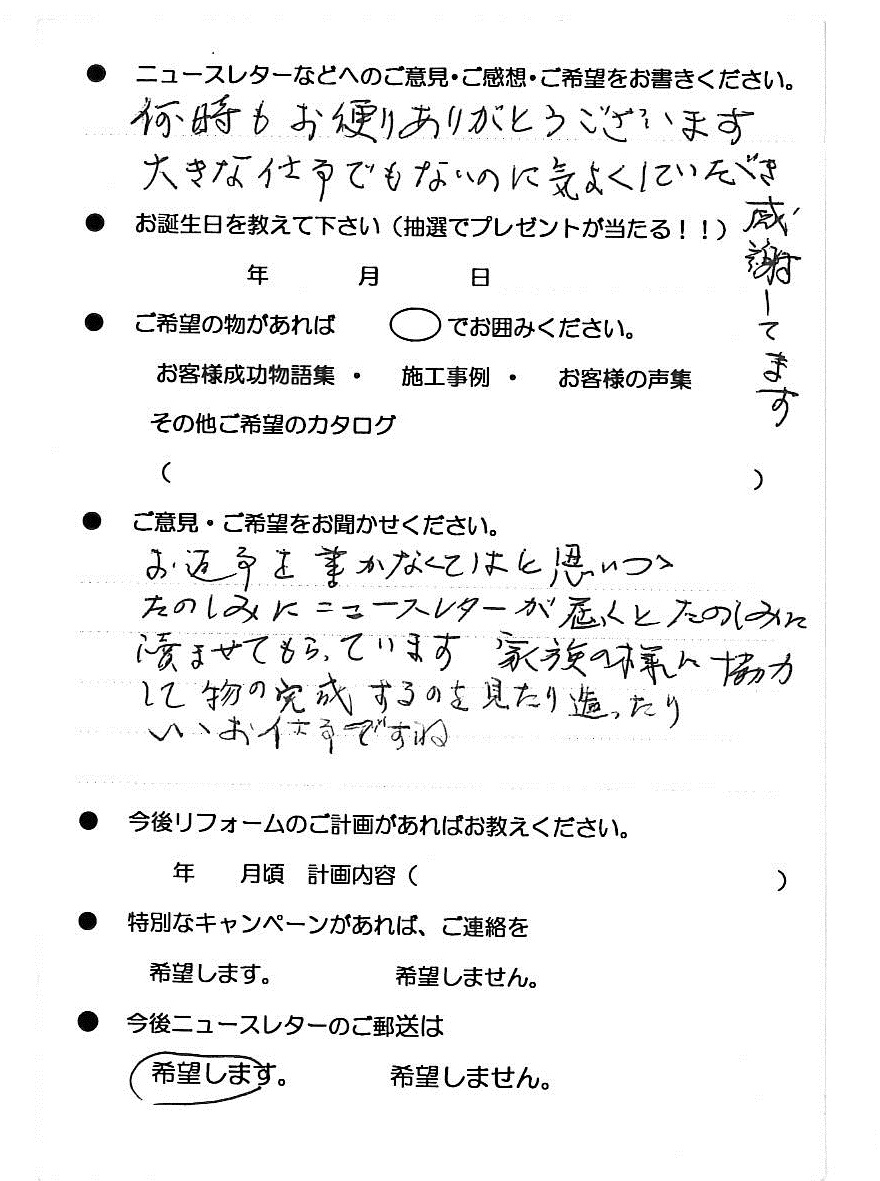 ● ニュースレターなどへのご意見・ご感想・ご希望をお書きください。
何時もお便りありがとうございます
大きな仕事でもないのに気よくしていただき
感謝してます
● お誕生日を教えて下さい（抽選でプレゼントが当たる！！）
年 月 日
● ご希望の物があれば ◯でお囲みください。
お客様成功物語集 ・ 施工事例 ・ お客様の声集
その他ご希望のカタログ
（ ）
● ご意見・ご希望をお聞かせください。
お返事を書かなくてはと思いつゝ
たのしみにニュースレターが届くとたのしみに
読ませてもらっています 家族の様に協力
して物の完成するのを見たり造ったり
いゝお仕事ですね
● 今後リフォームのご計画があればお教えください。
年 月頃 計画内容（ ）
● 特別なキャンペーンがあれば、ご連絡を
希望します。 希望しません。
● 今後ニュースレターのご郵送は
希望します。 希望しません。